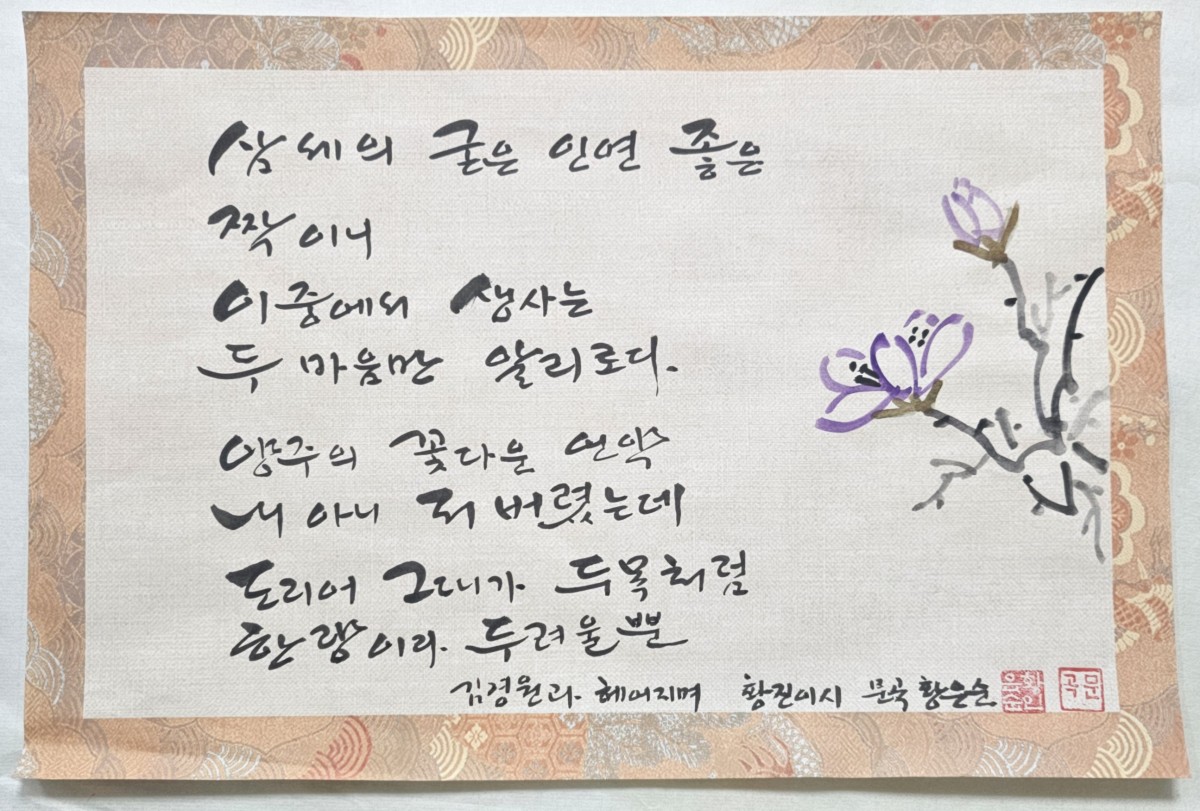 삼세의 굳은 인연 좋은
짝이니
이중에서 생사는
두 마음만 알리로다.
양주의 꽃다운 언약
내 아니 저버렸는데
도리어 그대가 두목처럼
한량이라. 두려울뿐
김경원과 헤어지며 황진이시 문곡 황은순
황은순
문곡